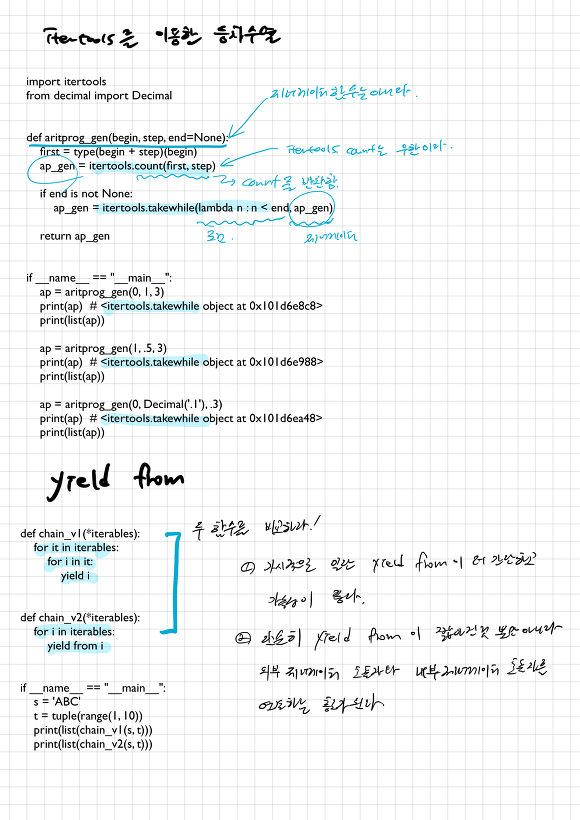 itertools를 이용한 등차수열
import itertools
from decimal import Decimal
제너레이터 함수는 아니다.
def aritprog_gen(begin, step, end=None):
first = type(begin + step)(begin)
itertools count는 무한이다.
ap_gen = itertools.count(first, step)
→ count를 반환함.
if end is not None:
ap_gen = itertools.takewhile(lambda n : n < end, ap_gen)
조건. 제너레이터
return ap_gen
if __name__ == "__main__":
ap = aritprog_gen(0, 1, 3)
print(ap) # <itertools.takewhile object at 0x101d6e8c8>
print(list(ap))
ap = aritprog_gen(1, .5, 3)
print(ap) # <itertools.takewhile object at 0x101d6e988>
print(list(ap))
ap = aritprog_gen(0, Decimal('.1'), .3)
print(ap) # <itertools.takewhile object at 0x101d6ea48>
print(list(ap))
yield from
def chain_v1(*iterables):
for it in iterables:
for i in it:
yield i
def chain_v2(*iterables):
for i in iterables:
yield from i
if __name__ == "__main__":
s = 'ABC'
t = tuple(range(1, 10))
print(list(chain_v1(s, t)))
print(list(chain_v2(s, t)))
두 함수를 비교하라!
① 가시적으로 일단 yield from이 더 간단하고
가독성이 좋다.
② 단순히 yield from이 짧아진것 뿐만 아니라
외부 제너레이터 호출자와 내부 제너레이터 호출자를
연결하는 통로가 된다